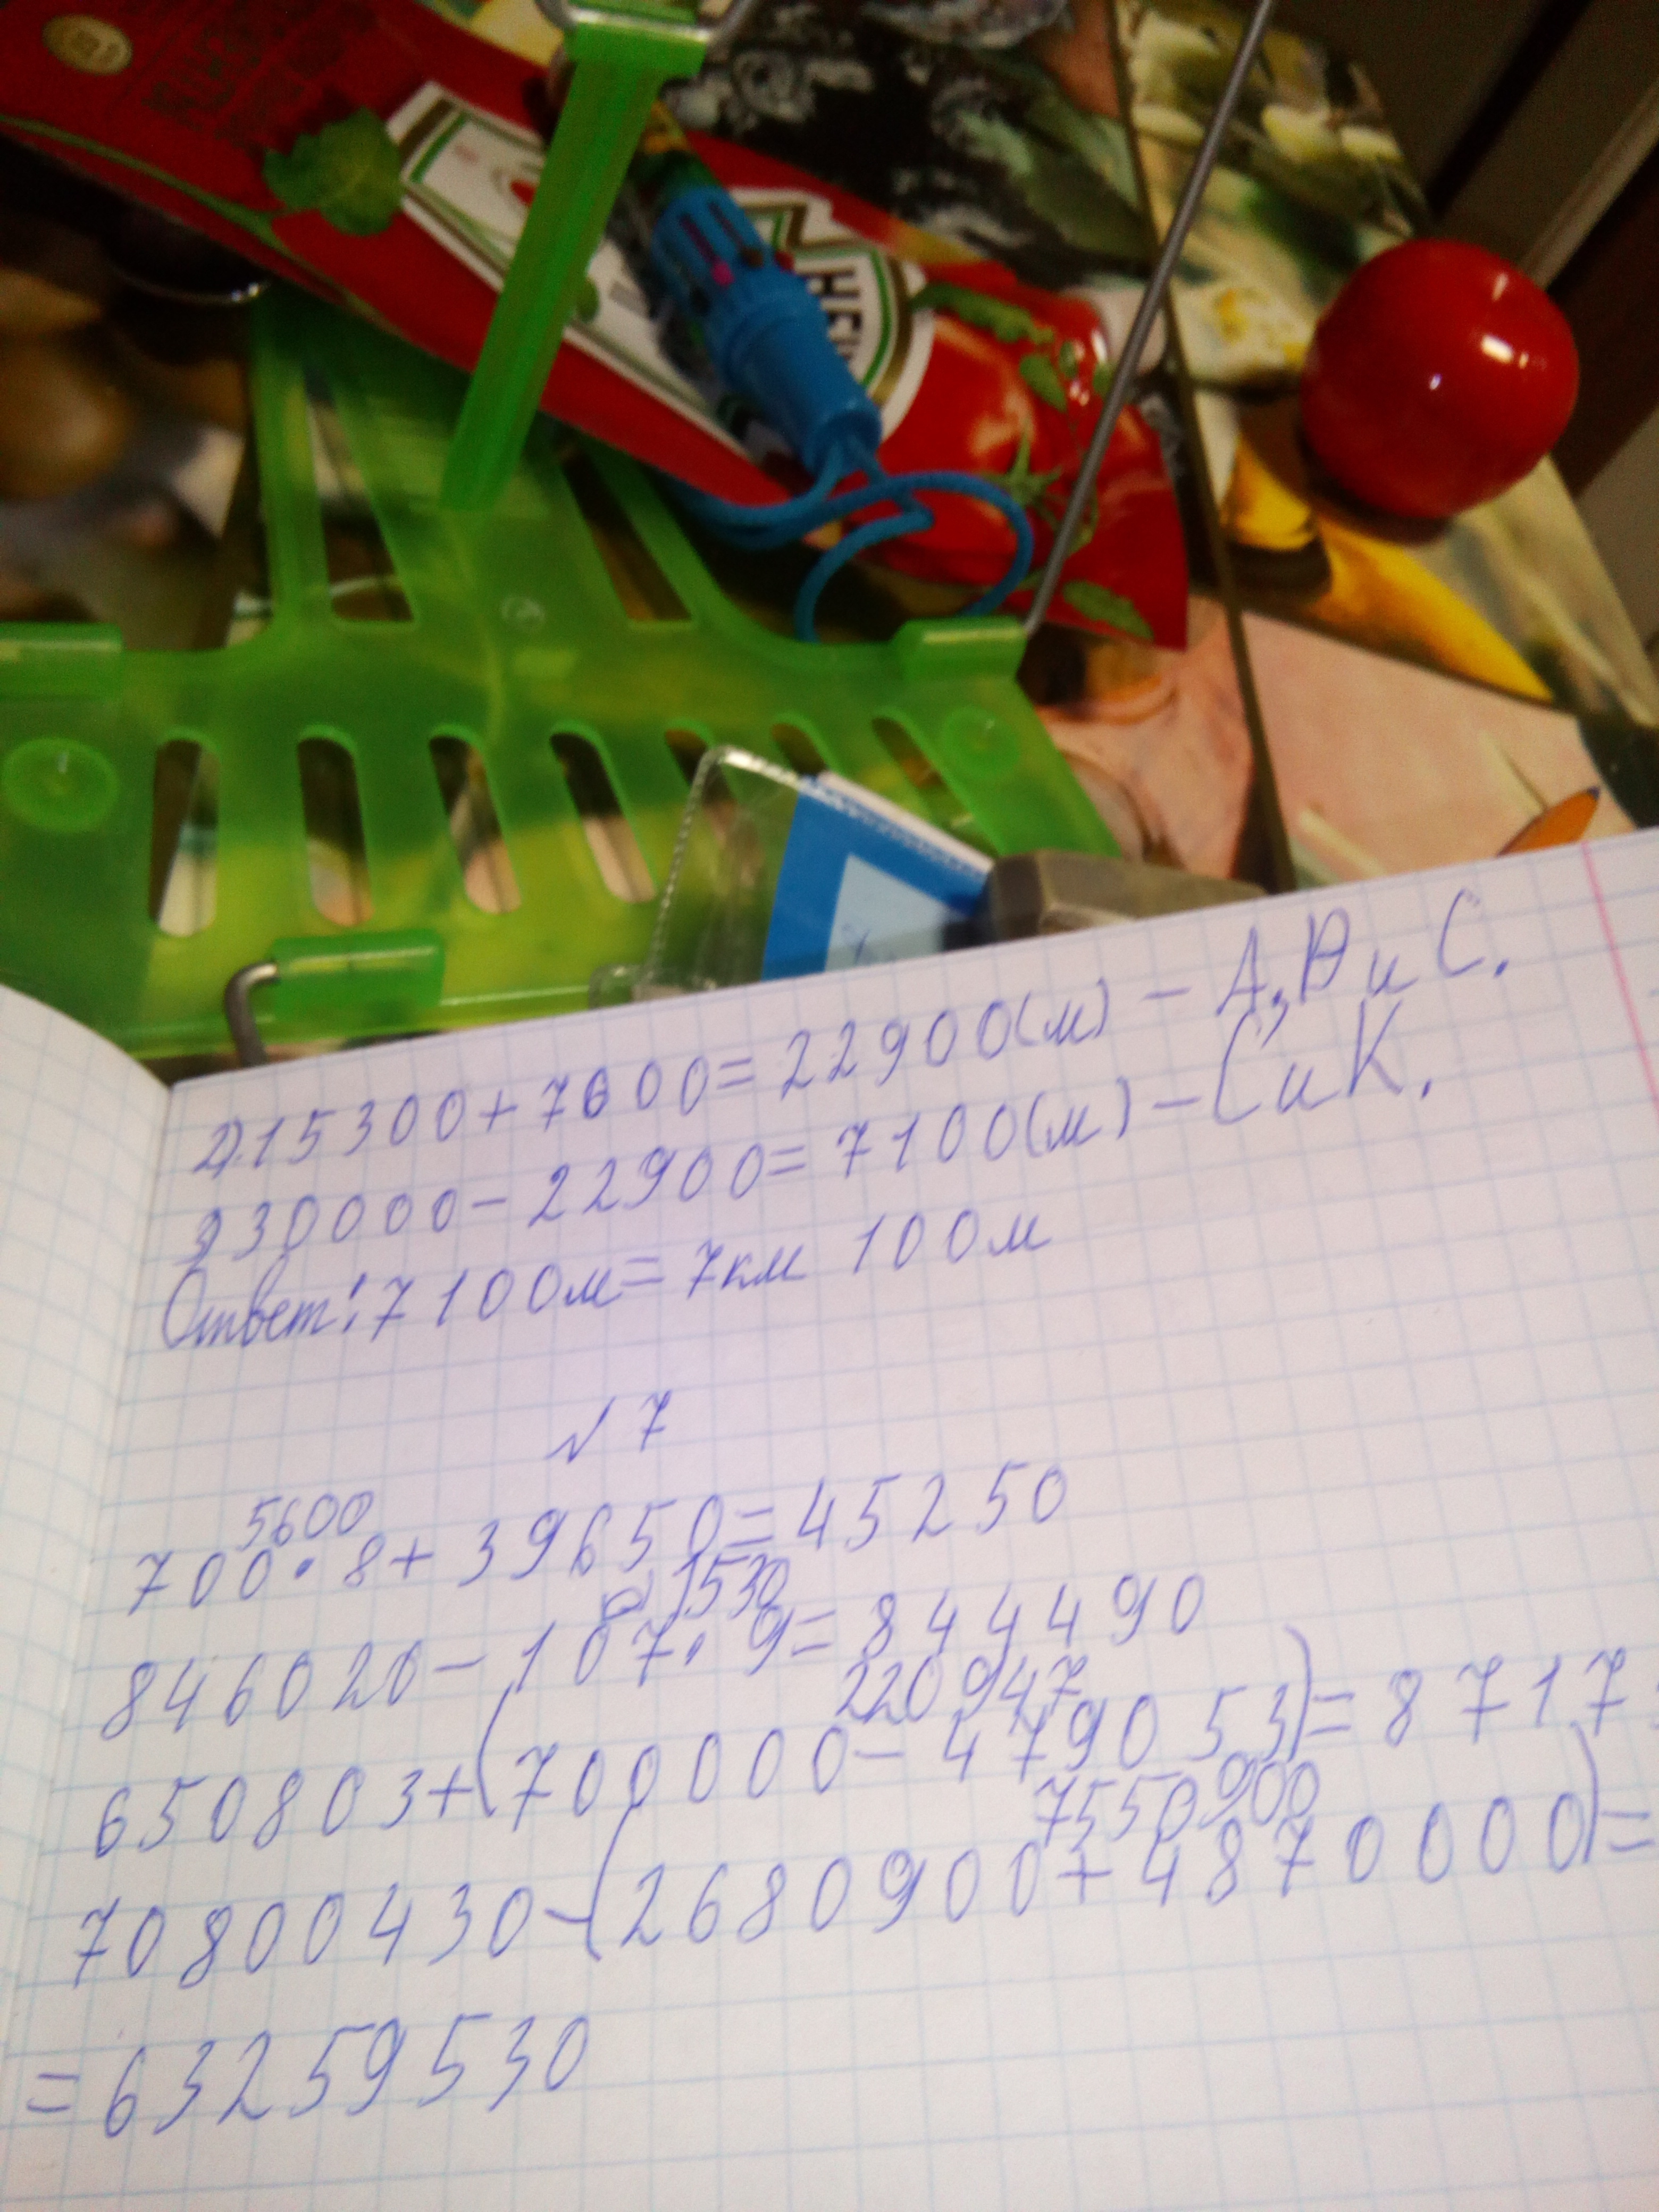 HEIN
2).15300+7600=22900(м) - А,В и С.
3)30000-22900=7100(м) - С и К.
Ответ: 7100м=7км 100м
№7
5600
700·8+39650=45250
1530
846020-187·9=844490
220947
650803+(700000-479053)=8717
7550900
70800430-(2680900+4870000)=
=63259530